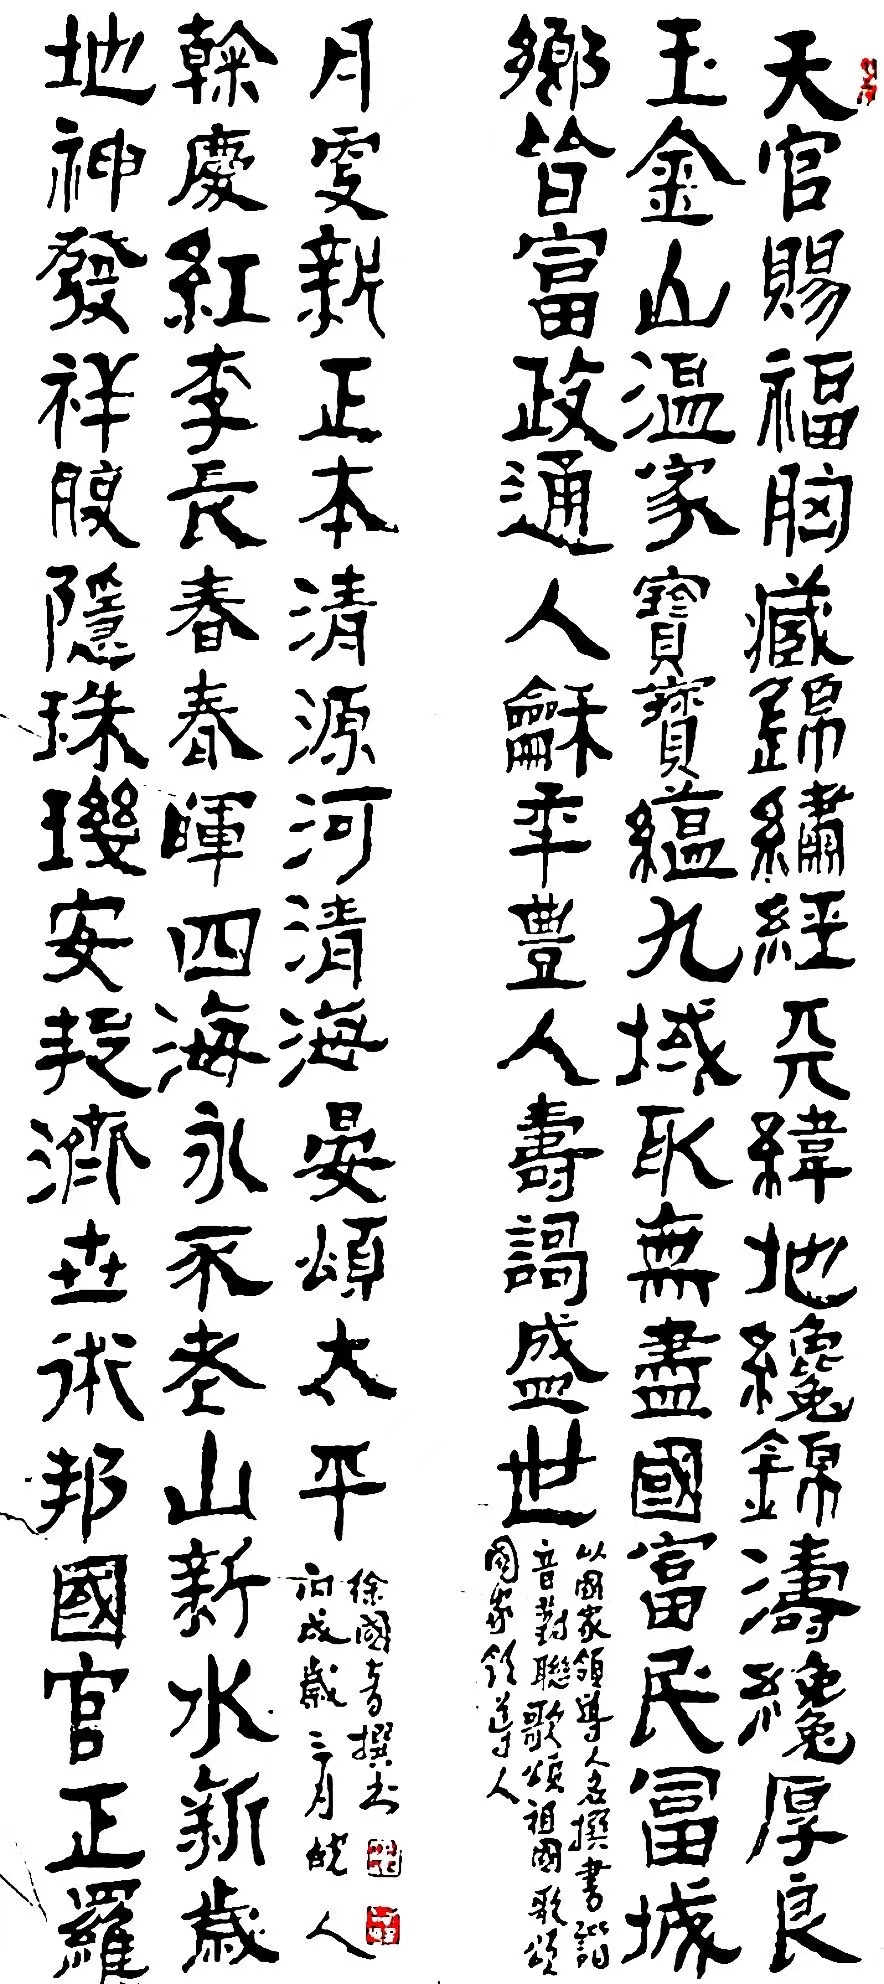 天官賜福胸藏錦繡經天緯地纔錦濤纔厚良
玉金山温家寶寶蘊九域取無盡國富民富城
鄉皆富政通人龢年豐人壽謌盛世
以國家領導人名撰書諧
音對聯歌頌祖國歌頌
國家領導人
地神發祥腹隱珠璣安邦濟世術邦國官正羅
榦慶紅李長春春暉四海永不老山新水新歲
月更新正本清源河清海晏頌太平
徐國撰书
丙戌歲三月皖人